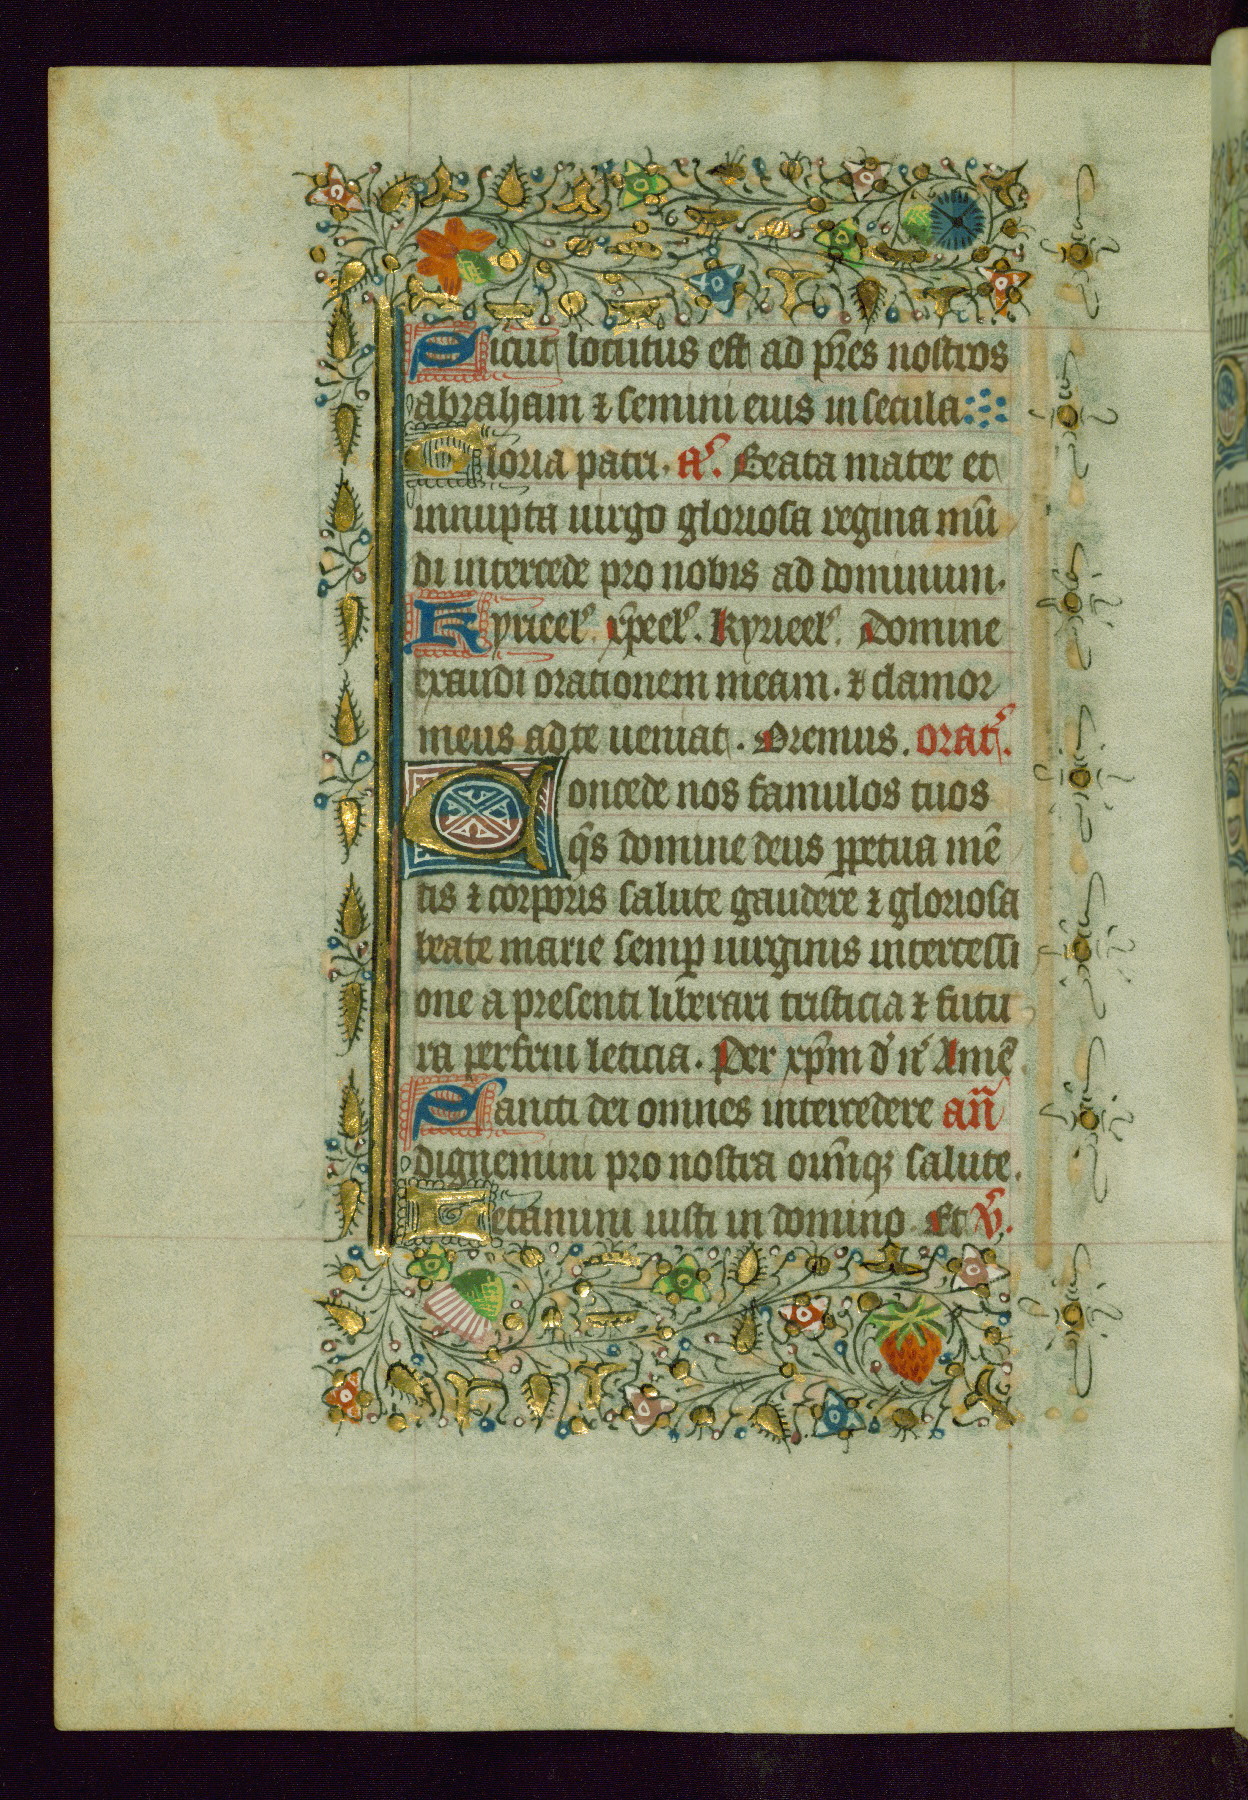 Sicut locutus est ad pr̄es nostros
abraham ⁊ semini eius in secula
Gloria patri. aᷤ. Beata mater et
innupta uirgo gloriosa regina mū
di intercede pro nobis ad dominum.
Kyrieelˀ. xp̄eelˀ. kyrieelˀ. Domine
exaudi orationem meam. ⁊ clamor
meus ad te ueniat. Oremus. oratˀ.
Concede nos famulos tuos
q̄s domine deus ꝑpetua mē
tis ⁊ corporis salute gaudere ⁊ gloriosa
beate marie semꝑ uirginis intercessi
one a presenti liberari tristicia ⁊ futu
ra perfrui leticia. Per xp̄m dˀ nˀ Amē.
Sancti dei omnes intercedere an̄
dignemini pro nostra oīmqꝫ salute.
Letamini iusti in domino. Et v̄.